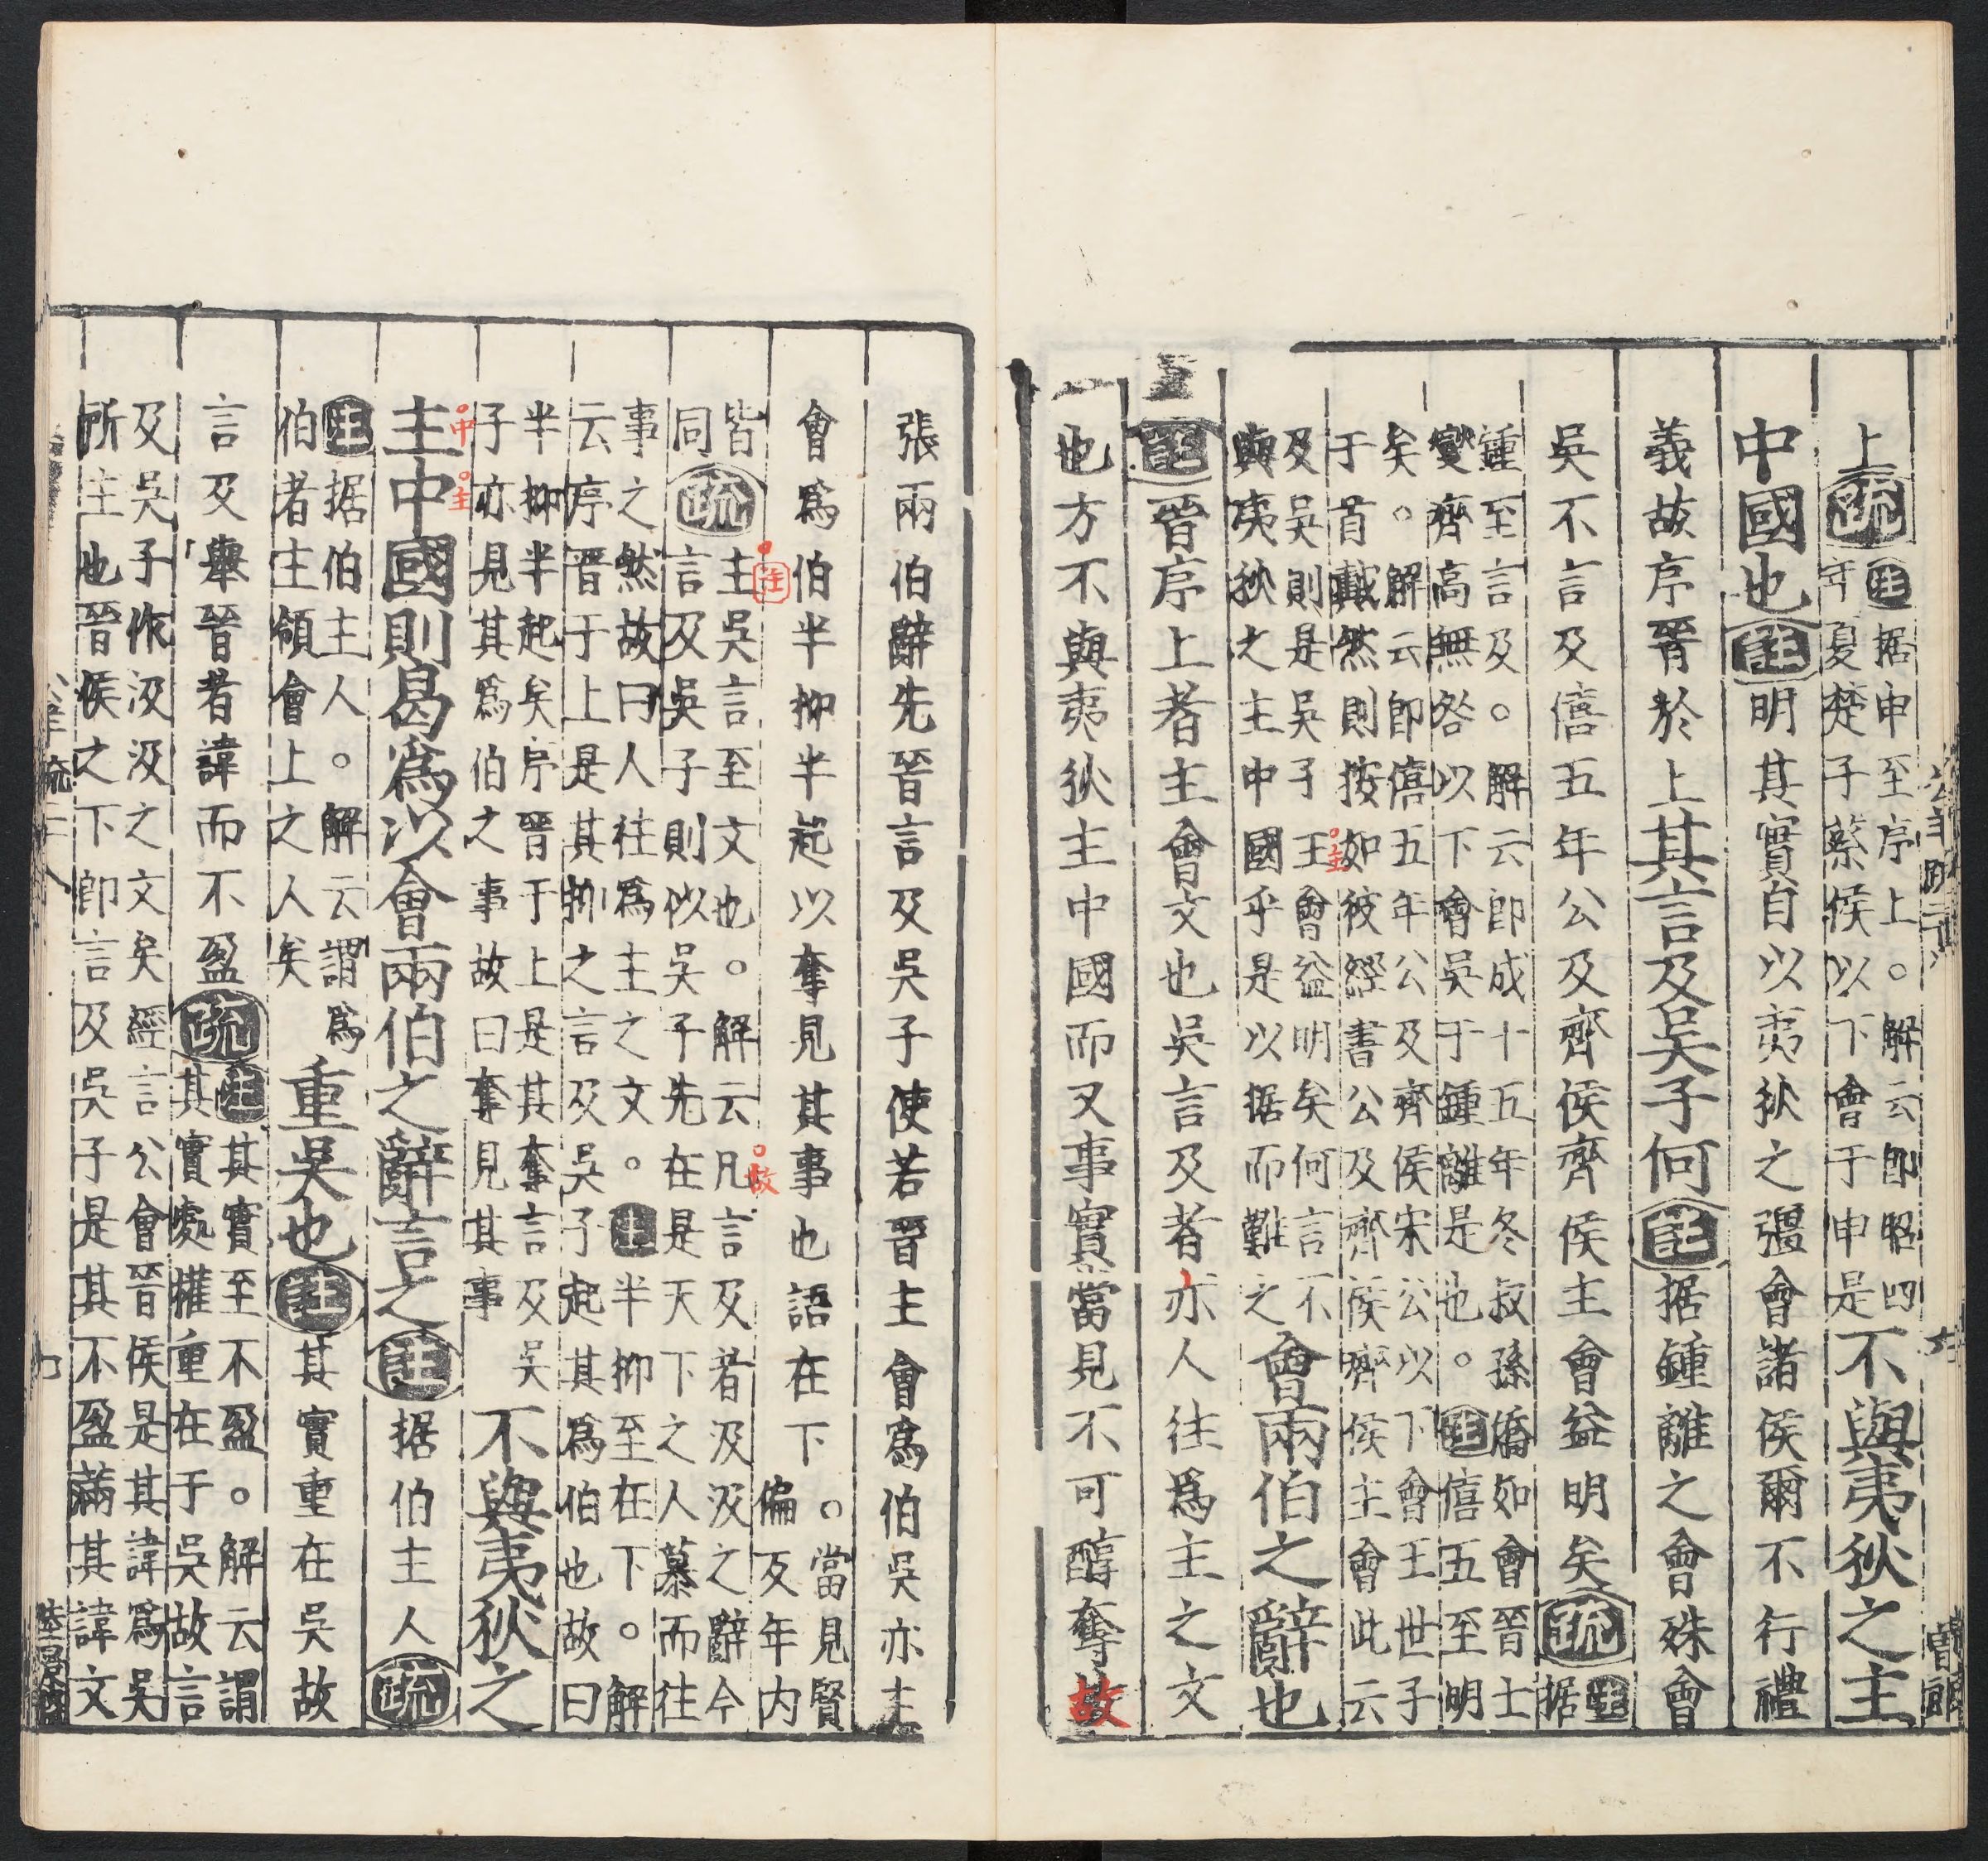 上疏注据申至序上○解云即昭四
年夏楚子蔡侯以下會于申是不與夷狄之主
中國也注明其實自以夷狄之彊會諸侯爾不行禮
義故序晉於上其言及吳子何注据鍾離之會殊會
吳不言及僖五年公及齊侯齊侯主會益明矣疏注据
鍾至言及○解云即成十五年冬叔孫僑如會晉士
燮齊高無咎以下會吳于鍾離是也○注僖五至明
矣○解云即僖五年公及齊侯宋公以下會王世子
于首戴然則按如彼經書公及齊侯齊侯主會此云
及吳則是吳子王會益明矣何言不
主
與夷狄之主中國乎是以据而難之會兩伯之辭也
注晉序上者主會文也吳言及者亦人往爲主之文
也方不與夷狄主中國而又事實當見不可醇奪故
張兩伯辭先晉言及吳子使若晉主會爲伯吳亦主
會爲伯半抑半起以奪見其事也語在下○當見賢
偏反年內
注
故
皆疏主吳言至文也○解云凡言及者汲汲之辭今
同言及吳子則似吳子先在是天下之人慕而往
事之然故曰人往爲主之文○注半抑至在下○解
云序晉于上是其抑之言及吳子起其爲伯也故曰
半抑半起矣序晉于上是其奪言及吳
子亦見其爲伯之事故曰奪見其事不與夷狄之
中主
主中國則曷爲以會兩伯之辭言之注据伯主人疏
注据伯主人○解云謂爲
伯者主領會上之人矣重吳也注其實重在吳故
言及舉晉者諱而不盈疏注其實至不盈○解云謂
其實處權重在于吳故言
及吳子作汲汲之文矣經言公會晉侯是其諱爲吳
所主也晉侯之下即言及吳子是其不盈滿其諱文